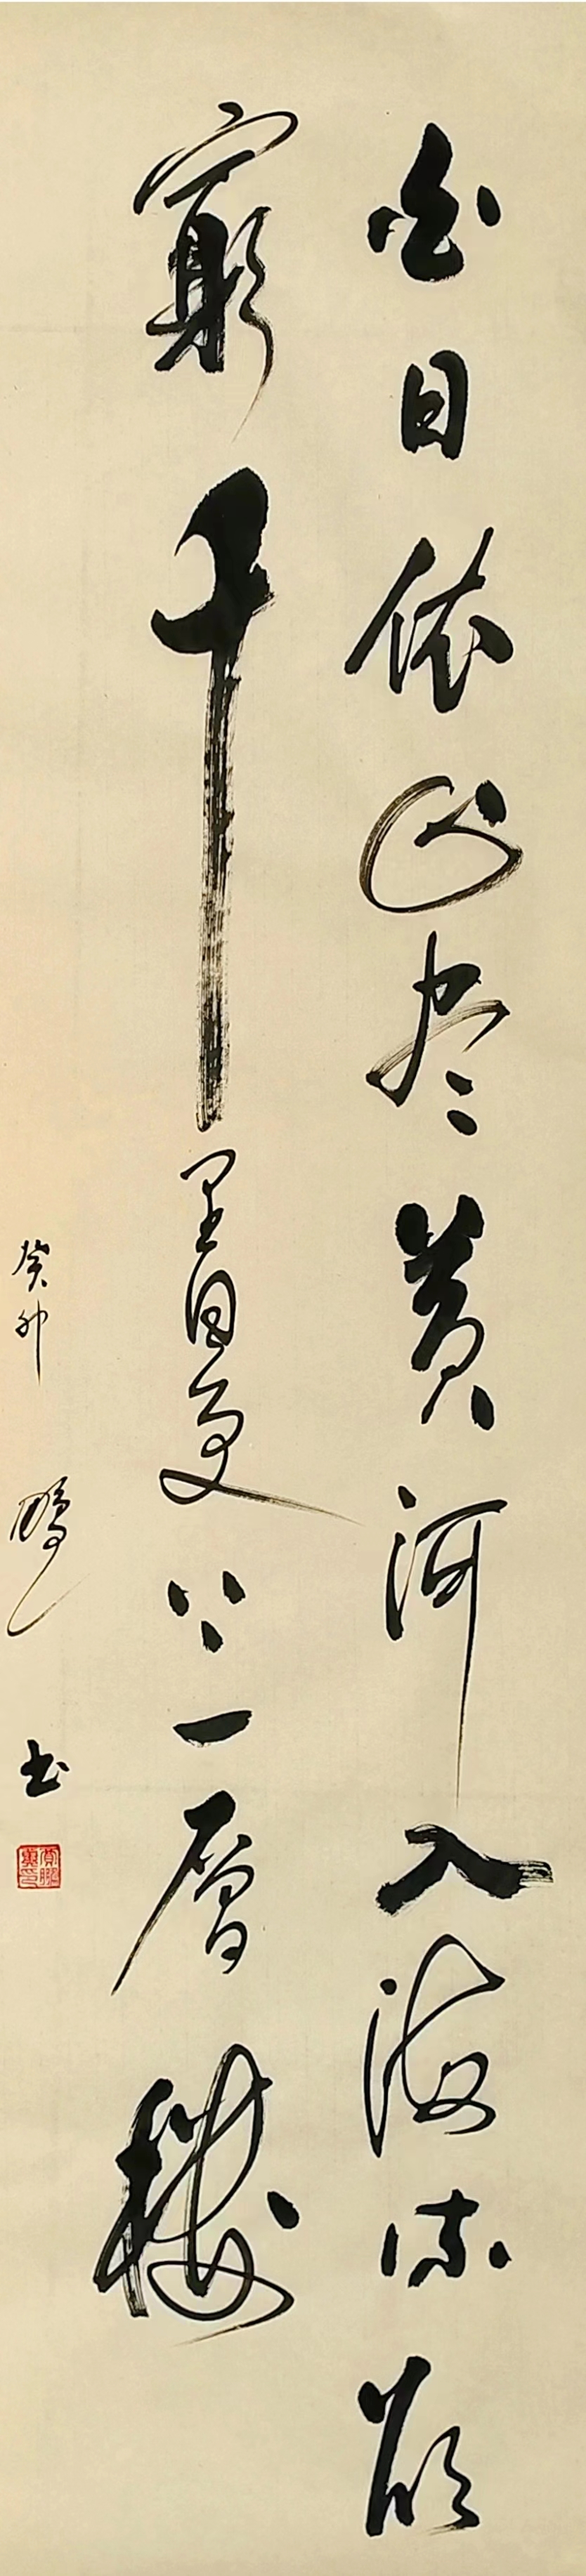 白日依山尽黄河入海流欲
窮千里目更上一層楼
癸卯 鹏 书